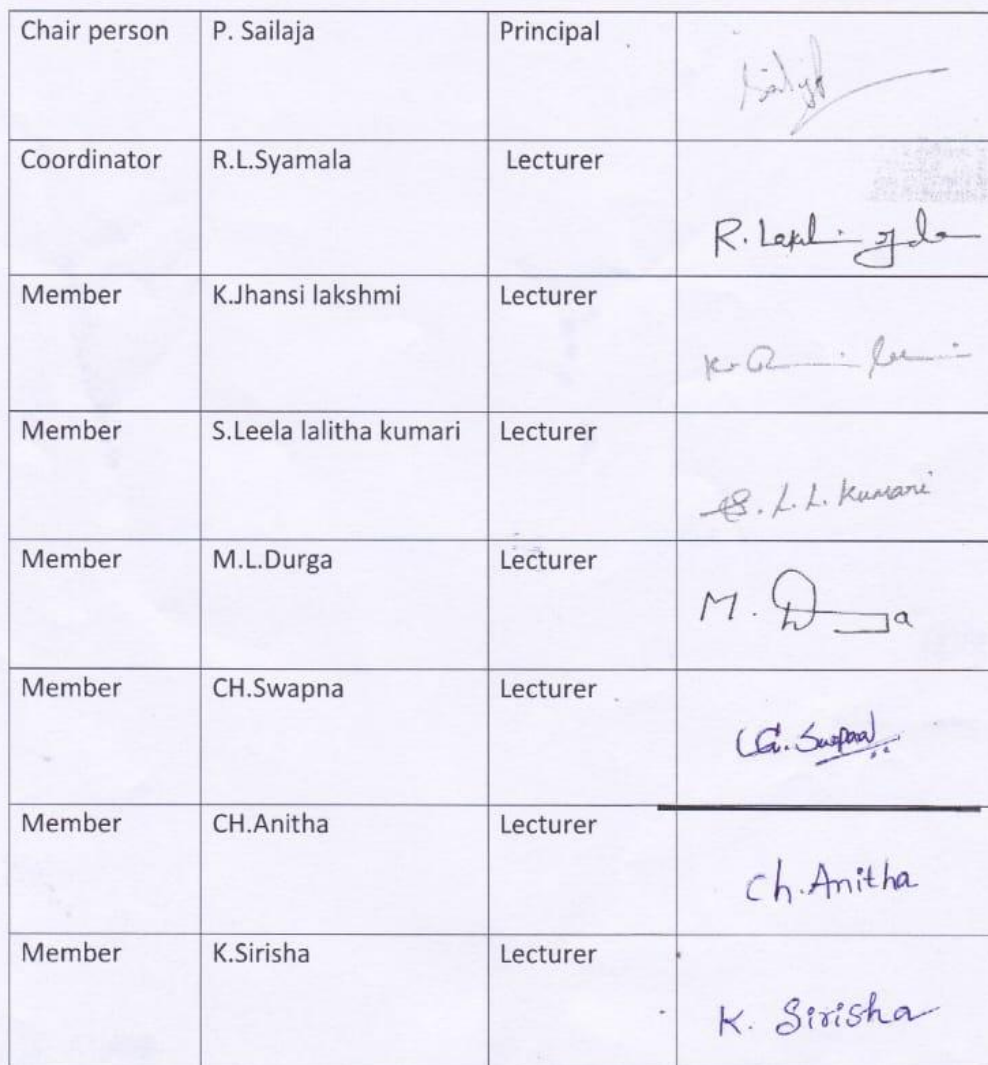 Chair person P. Sailaja Principal
Coordinator R.L.Syamala Lecturer
R.
Member K.Jhansi lakshmi Lecturer
K.
Member S.Leela lalitha kumari Lecturer
S. L. L. Kumari
Member M.L.Durga Lecturer
M. Durga
Member CH.Swapna Lecturer
Member CH.Anitha Lecturer
Ch. Anitha
Member K.Sirisha Lecturer
K. Sirisha